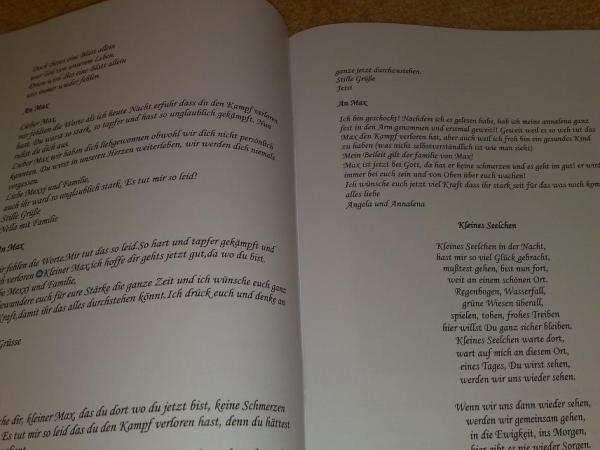 Doch dieses eine Blatt allein
war Teil von unserem Leben.
Drum wird dies eine Blatt allein
uns immer wieder fehlen.
An Max
Lieber Max,
mir fehlten die Worte als ich heute Nacht erfuhr dass du den Kampf verloren
hast. Du warst so stark, so tapfer und hast so unglaublich gekämpft. Nun
ruhst du dich aus.
Lieber Max wir haben dich liebgewonnen obwohl wir dich nicht persönlich
kannten. Du wirst in unseren Herzen weiterleben, wir werden dich niemals
vergessen.
Liebe Mexxy und Familie,
auch ihr ward so unglaublich stark. Es tut mir so leid!
Stille Grüße
Nella mit Familie
An Max
mir fehlen die Worte.Mir tut das so leid.So hart und tapfer gekämpft und
verloren Kleiner Max,ich hoffe dir gehts jetzt gut,da wo du bist.
Mexxy und Familie,
bewundere euch für eure Stärke die ganze Zeit und ich wünsche euch ganz
Kraft,damit ihr das alles durchstehen könnt.Ich drück euch und denke an
Grüsse
dir, kleiner Max, das du dort wo du jetzt bist, keine Schmerzen
Es tut mir so leid das du den Kampf verloren hast, denn du hättest
ganze jetzt durchzustehen.
Stille Grüße
Jessi
An Max
Ich bin geschockt! Nachdem ich es gelesen habe, hab ich meine annalena ganz
fest in den Arm genommen und erstmal geweit! Geweit weil es so weh tut das
Max den Kampf verloren hat, aber auch weil ich froh bin ein gesundes Kind
zu haben (was nicht selbstverständlich ist wie man sieht)
Mein Beileid gilt der familie von Max!
Max ist jetzt bei Gott, da hat er keine schmerzen und es geht im gut! er wird
immer bei euch sein und von Oben über euch wachen!
Ich wünsche euch jetzt viel Kraft dass ihr stark seit für das was noch kom
alles liebe
Angela und Annalena
Kleines Seelchen
Kleines Seelchen in der Nacht,
hast mir so viel Glück gebracht,
mußtest gehen, bist nun fort,
weit an einem schönen Ort.
Regenbogen, Wasserfall,
grüne Wiesen überall,
spielen, toben, frohes Treiben
hier willst Du ganz sicher bleiben.
Kleines Seelchen warte dort,
wart auf mich an diesem Ort,
eines Tages, Du wirst sehen,
werden wir uns wieder sehen.
Wenn wir uns dann wieder sehen,
werden wir gemeinsam gehen,
in die Ewigkeit, ins Morgen,
hier gibt es nie wieder Sorgen.